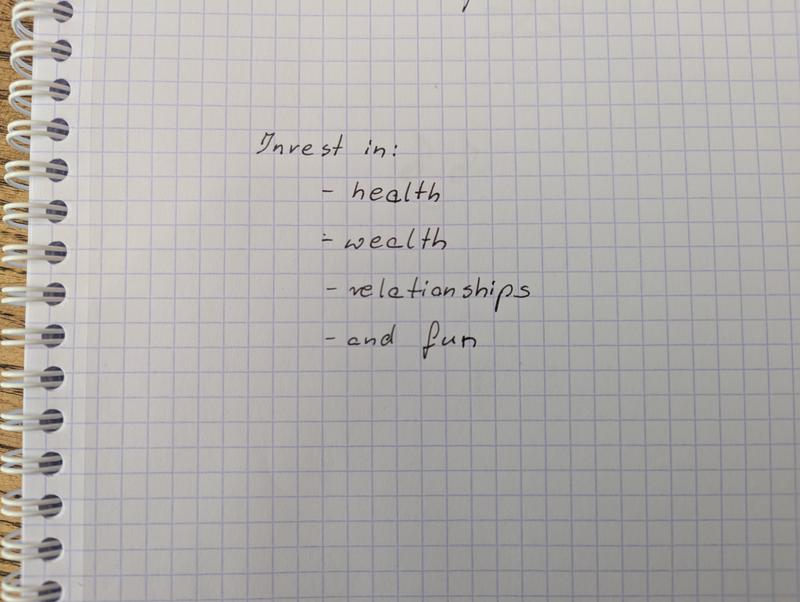 Invest in:
- health
- wealth
- relationships
- and fun